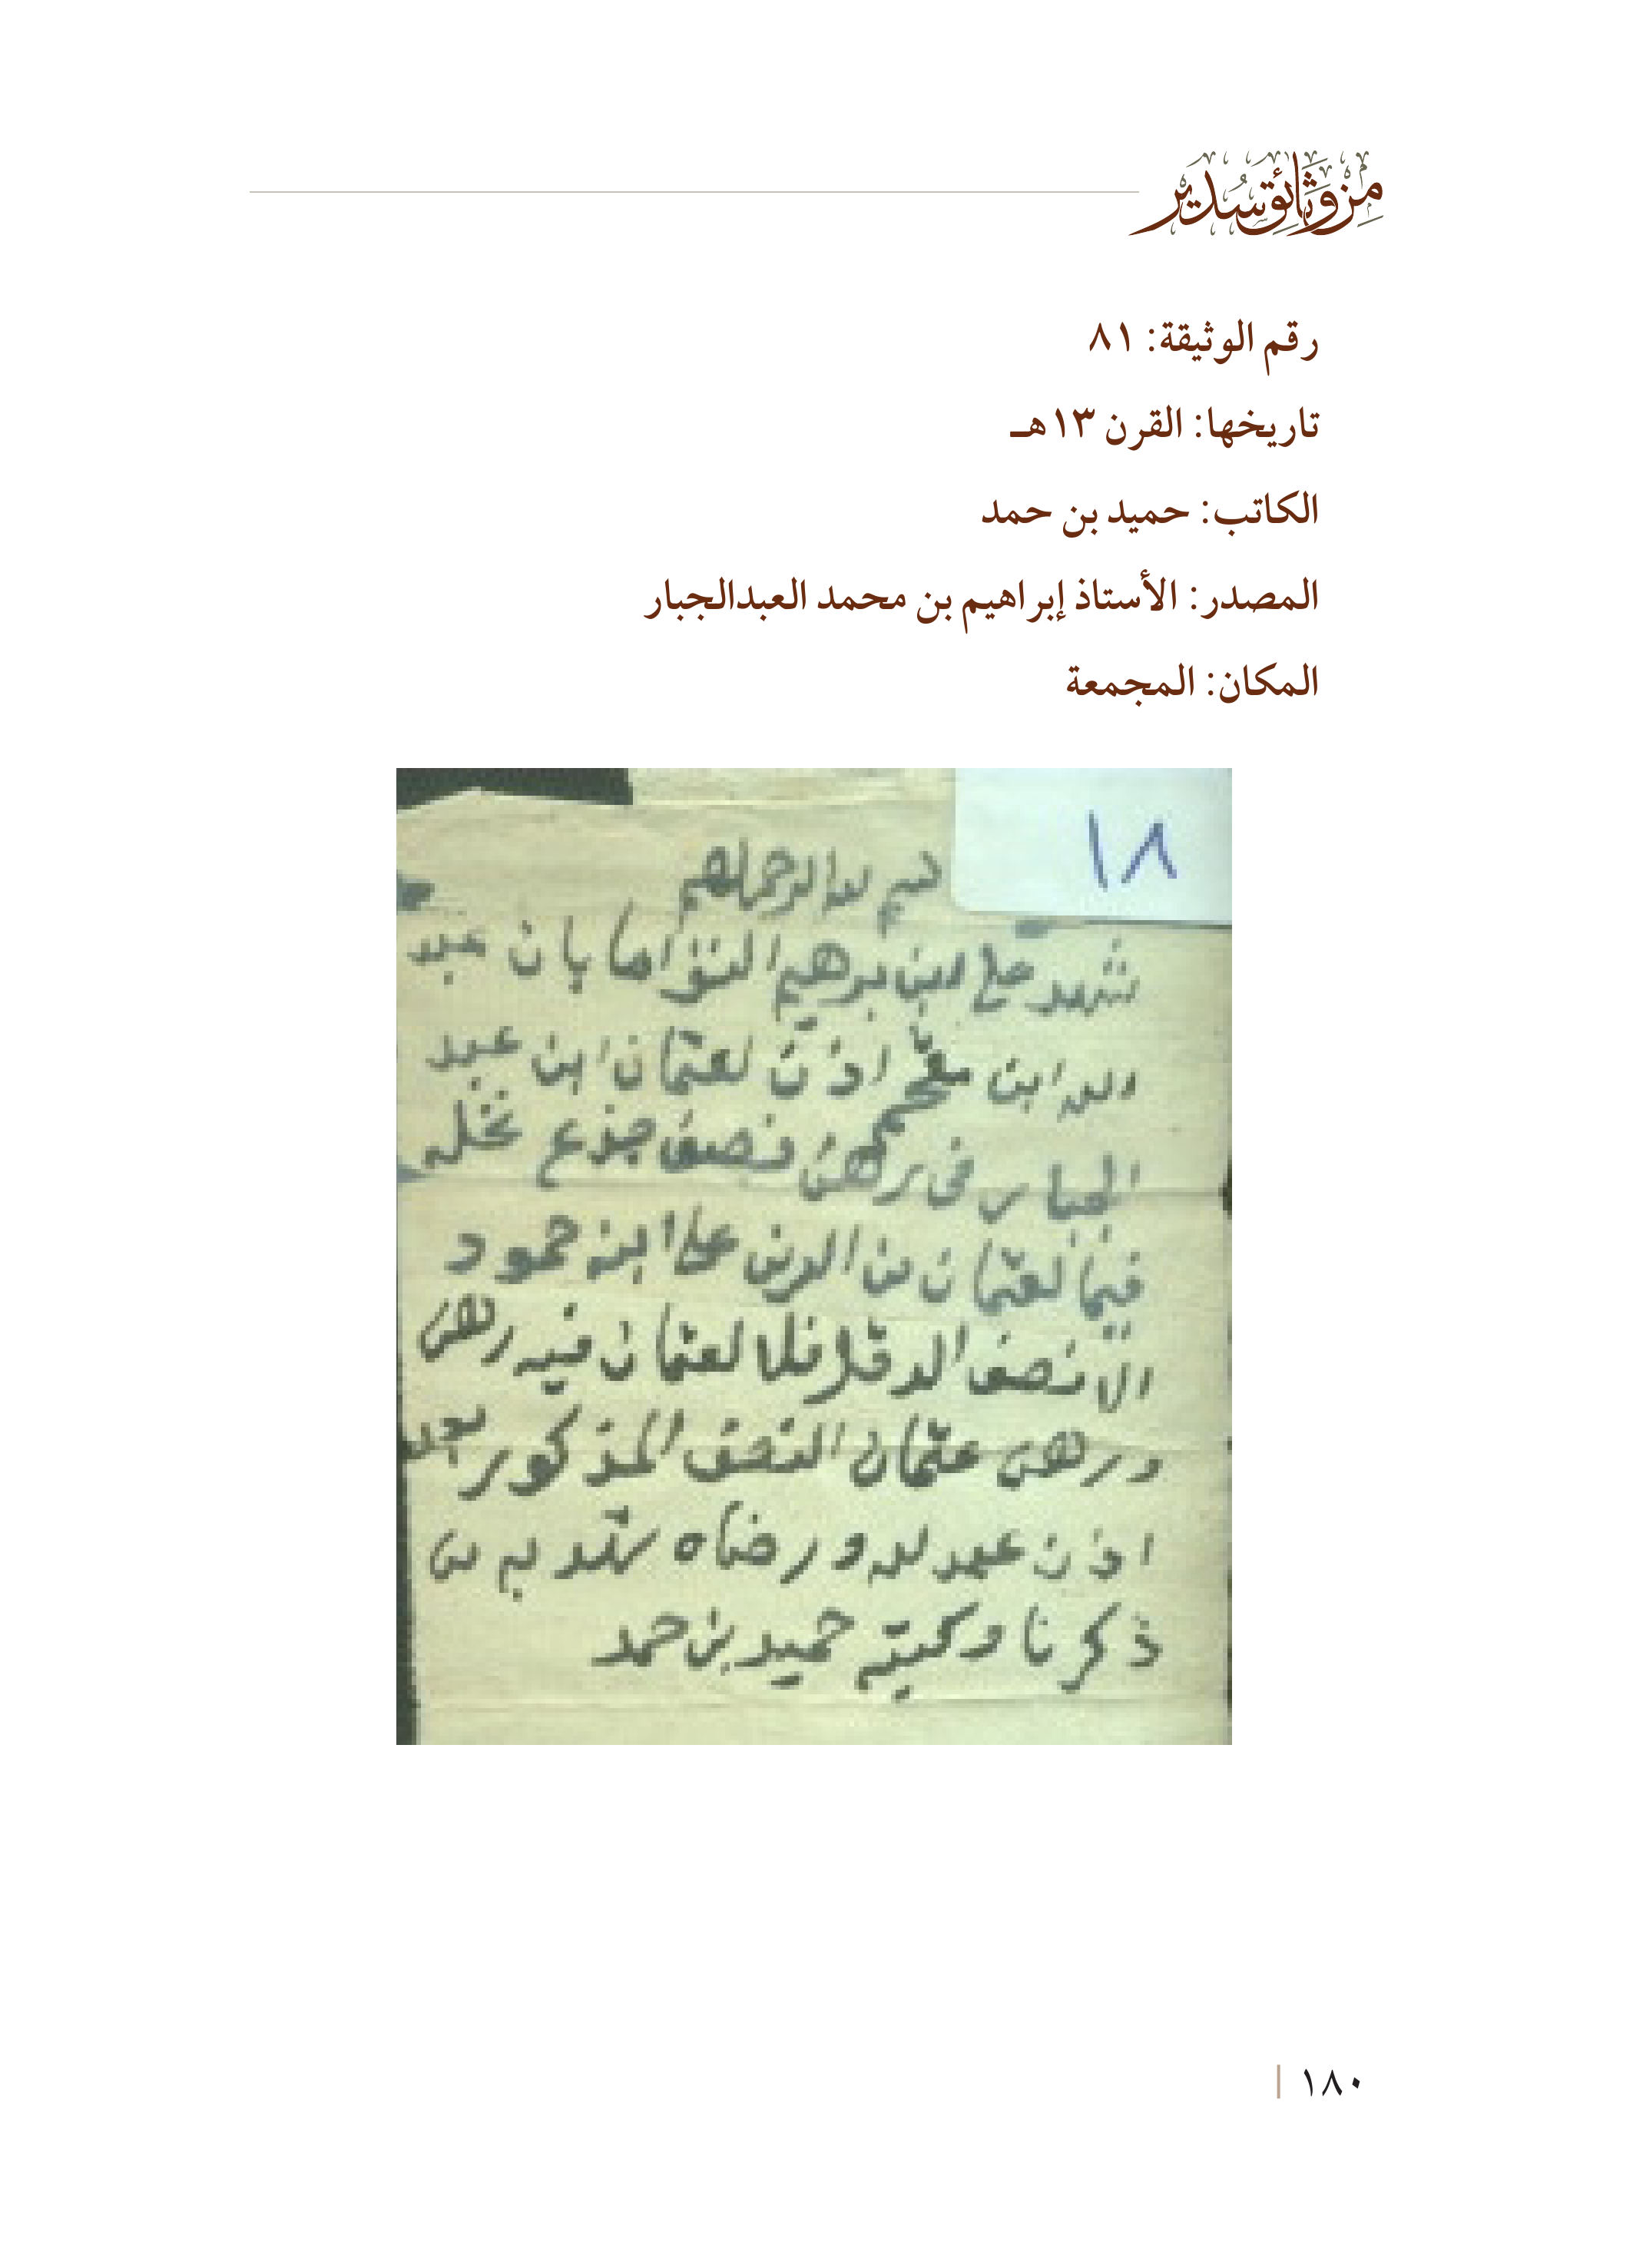 من وثائق سدير
رقم الوثيقة: ٨١
تاريخها: القرن ١٣هـ
الكاتب: حميد بن حمد
المصدر: الأستاذ إبراهيم بن محمد العبدالجبار
المكان: المجمعة
١٨
بسم الله الرحمن الرحيم
شهد علي ابن برهيم بان عبد
الله ابن مقحم اذن لعثمان ابن عبد
الجبار في رهن نصف جذع نخله
فيما لعثمان من الدين على ابن حمود
الا نصف الدقل فلا لعثمان فيه رهن
ورهن عثمان النصف المذكور بعد
اذن عبد الله ورضاه شهد به من
ذكرنا وكتبته حميد بن حمد
١٨٠